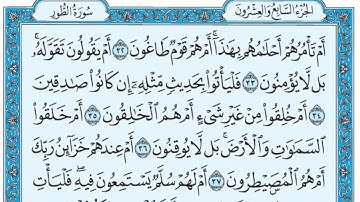 سُورَةُ الطُّورِ الجُزْءُ السَّابِعُ وَالعِشْرُونَ
أَمْ تَأْمُرُهُمْ أَحْلَٰمُهُم بِهَٰذَآ ۚ أَمْ هُمْ قَوْمٌ طَاغُونَ ٣٢ أَمْ يَقُولُونَ تَقَوَّلَهُۥ ۚ
بَل لَّا يُؤْمِنُونَ ٣٣ فَلْيَأْتُوا۟ بِحَدِيثٍ مِّثْلِهِۦٓ إِن كَانُوا۟ صَٰدِقِينَ
٣٤ أَمْ خُلِقُوا۟ مِنْ غَيْرِ شَىْءٍ أَمْ هُمُ ٱلْخَٰلِقُونَ ٣٥ أَمْ خَلَقُوا۟
ٱلسَّمَٰوَٰتِ وَٱلْأَرْضَ ۚ بَل لَّا يُوقِنُونَ ٣٦ أَمْ عِندَهُمْ خَزَآئِنُ رَبِّكَ
أَمْ هُمُ ٱلْمُصَۣيْطِرُونَ ٣٧ أَمْ لَهُمْ سُلَّمٌ يَسْتَمِعُونَ فِيهِ ۖ فَلْيَأْتِ